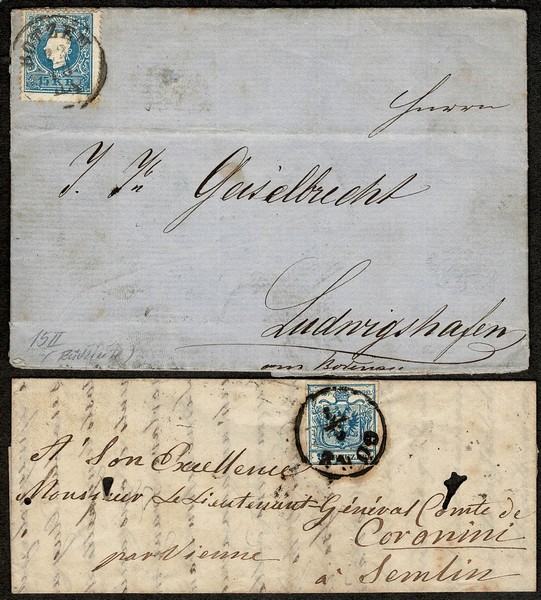 BOTZEN
15 KR
Herrn
J. Js Geiselbrecht
Ludwigshafen
am Bodensee
15 II
9 KREUZER
À Son Excellence
Monsieur Le Lieutenant-Général Comte de
Coronini
par Vienne
à Semlin